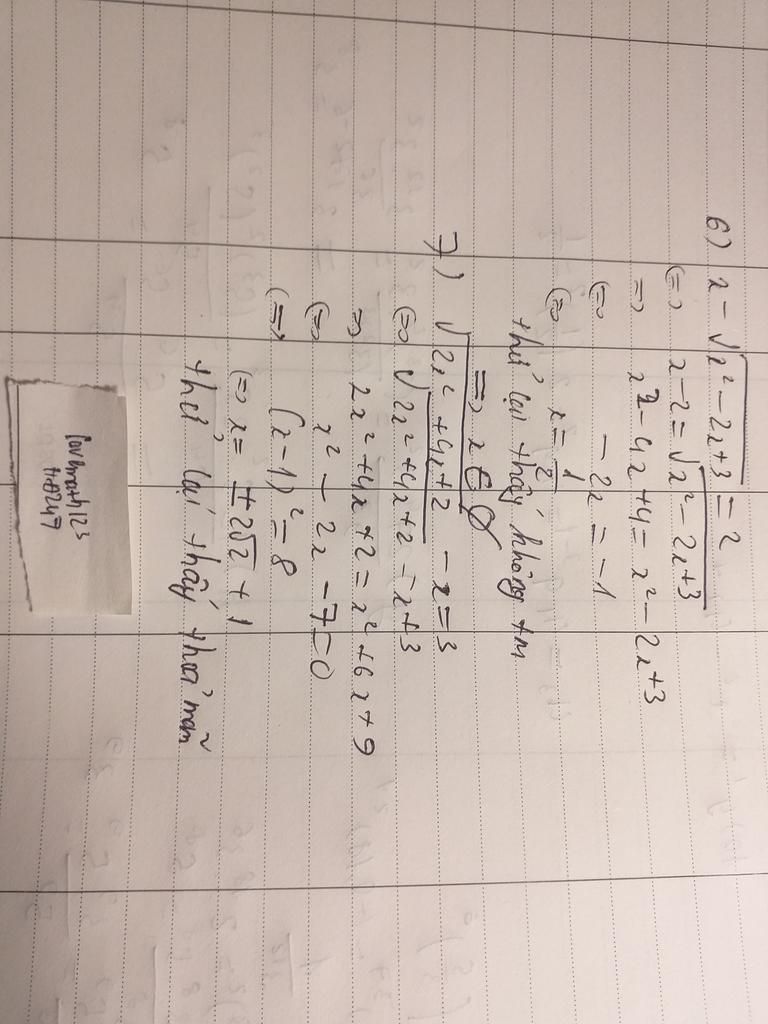 6) x - √x² - 2x + 3 = 2
(=) x - 2 = √x² - 2x + 3
=> x² - 4x + 4 = x² - 2x + 3
(=) - 2x = - 1
(=) x = 1/2
thử lại thấy không tm
=> x ∈ ∅
7) √2x² + 4x + 2 - x = 3
(=) √2x² + 4x + 2 = x + 3
=> 2x² + 4x + 2 = x² + 6x + 9
(=) x² - 2x - 7 = 0
(=) (x - 1)² = 8
(=) x = ± 2√2 + 1
thử lại thấy thoả mãn
lovemath123
tt@247